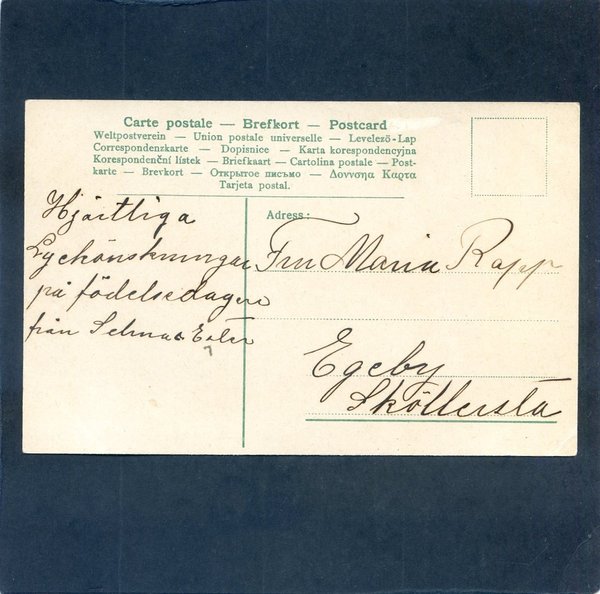 Carte postale — Brefkort — Postcard
Weltpostverein — Union postale universelle — Levelező-Lap
Correspondenzkarte — Dopisnice — Karta korespondencyjna
Korespondenční lístek — Briefkaart — Cartolina postale — Post-
karte — Brevkort — Открытое письмо — Δοννσηα Καρτα
Tarjeta postal.
Hjärtliga
Lyckönskningar
på födelsedagen
från Selma
Adress:
Fru Maria Rapp
Egeby
Sköllersta